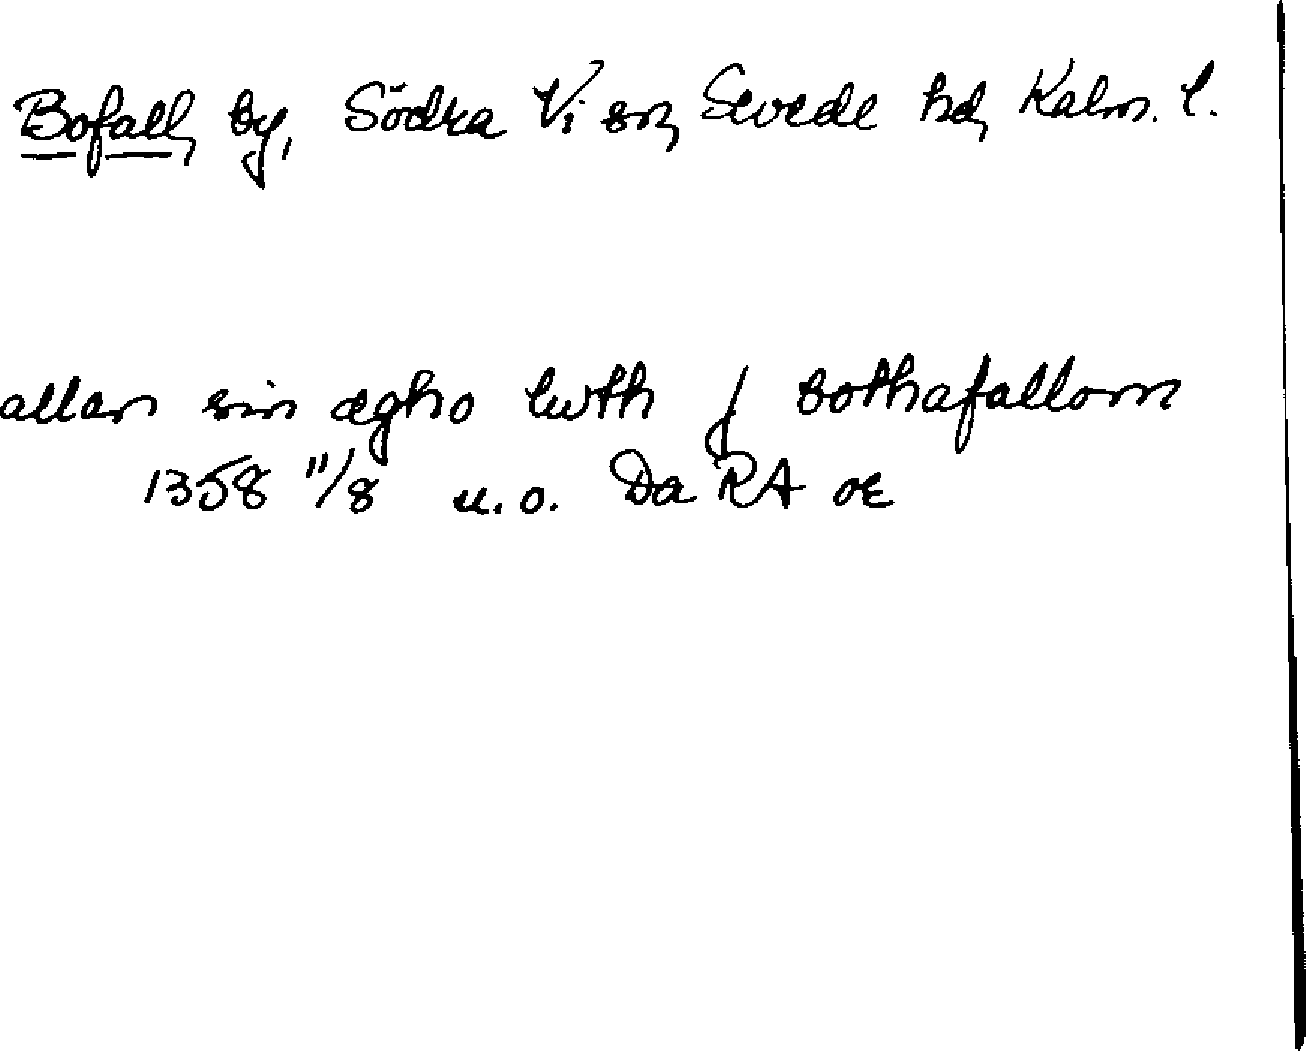 Bofall, by, Södra Vi sn, Sevede hd, Kalm. l.
allan sin ægho lwth j bothafallom
1358 11/8 u.o. Da RA or